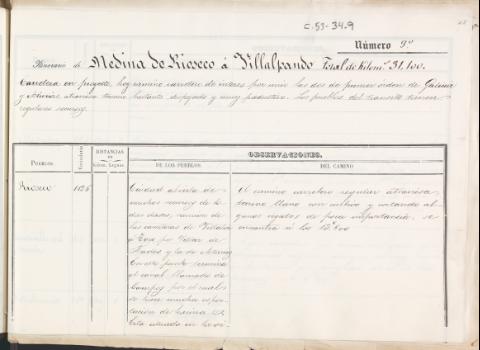 C.53-34.9
Número 9º
Itinerario de Medina de Rioseco á Villalpando Total de Kilomº 31,100.
Carretera en proyecto, hoy camino carretero de interes por unir las dos de primer orden de Galicia
y Asturias atraviesa terreno bastante despejado y muy productivo. Los pueblos del transito tienen
regulares recursos
PUEBLOS.
DISTANCIAS
EN
Kilóm. Leguas.
OBSERVACIONES.
DE LOS PUEBLOS.
DEL CAMINO
Rioseco
Ciudad abierta de
muchos recursos de to-
das clases, reunion de
las carreteras de
á Toro por Villar de
Frades y la de
En este punto termina
el canal llamado de
Campos por el cual
se hace mucha espor-
tacion de harina
Está situada en
El camino carretero regular atraviesa
terreno llano con cultivo y cortando al-
gunos regatos de poca importancia, se
encuentra á los